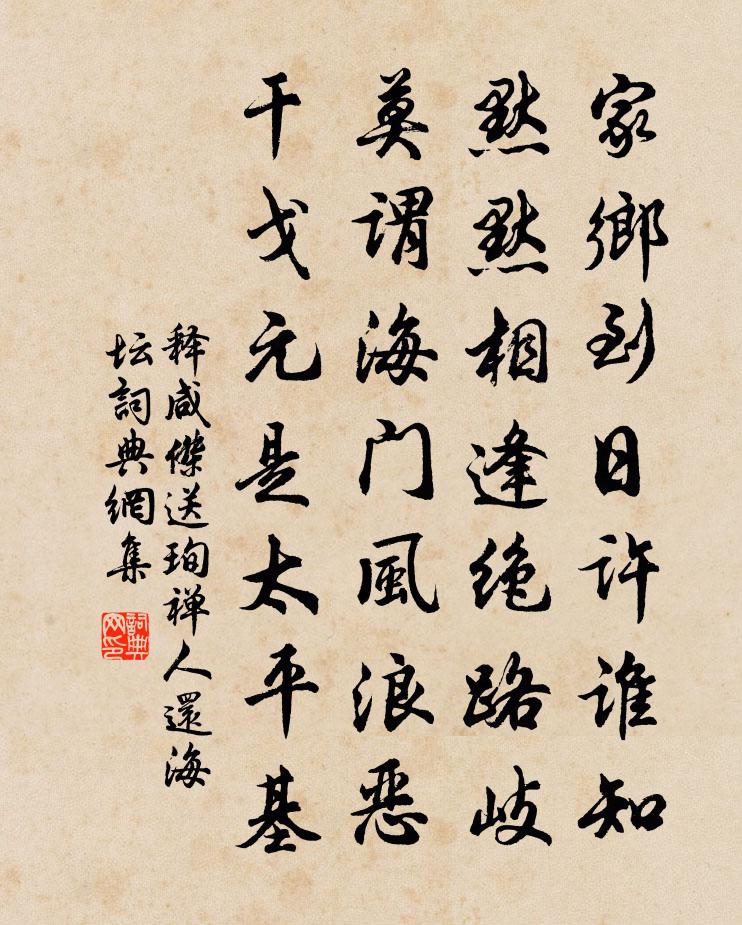 家鄉到日許誰知
默默相逢絶路岐
莫謂海门風浪恶
干戈元是太平基
释咸傑送珣禅人還海
坛詞典網集
詞典网印